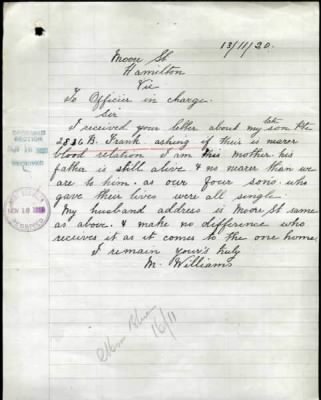 13/11/20.
Moore St
Hamilton
Vic
To Officier in charge.
Sir
I received your letter about my late son Pte
2836 B. Frank asking if their is nearer
blood relation I am his mother his
father is still alive & no nearer than we
are to him. as our four sons who
gave their lives were all single
My husband address is Moore St same
as above. & make no difference who
receives it as it comes to the one home.
I remain your's truly
M. Williams
16/11